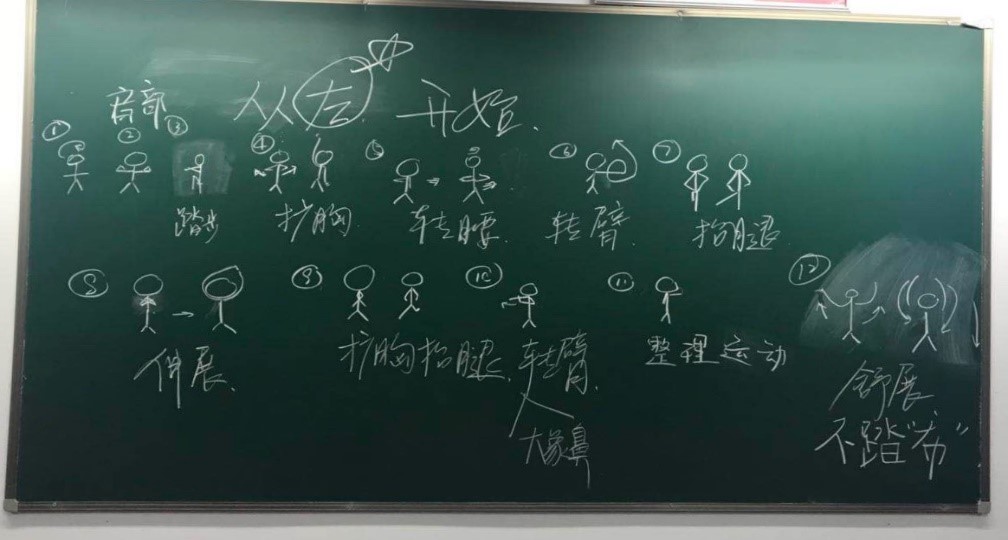 从左开始.
① ② ③ ④ ⑤ ⑥ ⑦
踏步 扩胸. 转腰. 转臂. 抬腿
⑧ ⑨ ⑩ ⑪ ⑫
伸展. 扩胸抬腿. 转臂. 整理运动 舒展
大象鼻 不踏"步"